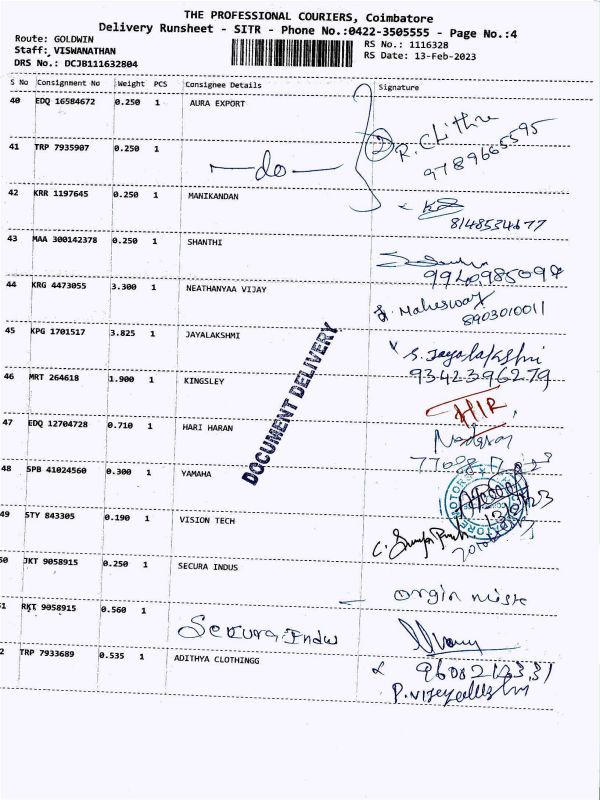 THE PROFESSIONAL COURIERS, Coimbatore
Delivery Runsheet - SITR - Phone No.:0422-3505555 - Page No.:4
Route: GOLDWIN
Staff: VISWANATHAN
DRS No.: DCJB111632804
RS No.: 1116328
RS Date: 13-Feb-2023
S No Consignment No Weight PCS Consignee Details Signature
40 EDQ 16584672 0.250 1 AURA EXPORT
R. Chithra
9789665595
41 TRP 7935907 0.250 1 -do-
42 KRR 1197645 0.250 1 MANIKANDAN
8148534677
43 MAA 300142378 0.250 1 SHANTHI
44 KRG 4473055 3.300 1 NEATHANYAA VIJAY
Maheswari
8903010011
45 KPG 1701517 3.825 1 JAYALAKSHMI
S. Jayalakshmi
9342396279
46 MRT 264618 1.900 1 KINGSLEY
47 EDQ 12704728 0.710 1 HARI HARAN
48 SPB 41024560 0.300 1 YAMAHA
49 STY 843305 0.190 1 VISION TECH
50 JKT 9058915 0.250 1 SECURA INDUS
orgin miss
51 RKT 9058915 0.560 1 Secura Indus
52 TRP 7933689 0.535 1 ADITHYA CLOTHINGG
P. Vijayalakshmi
DOCUMENT DELIVERY